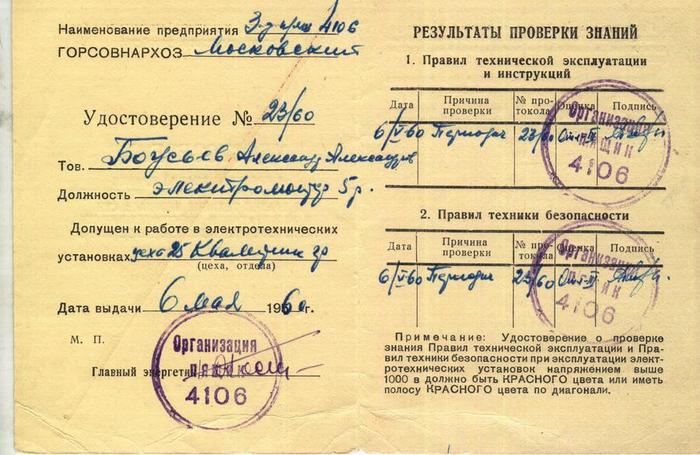 Наименование предприятия 4106
ГОРСОВНАРХОЗ Московский
Удостоверение № 23/60
Тов. Александр Александров
Должность электромонтер 5 р.
Допущен к работе в электротехнических
установках цеха 25
(цеха, отдела)
Дата выдачи 6 мая 1960 г.
М. П.
Главный энергетик
Организация
п/ящик
4106
РЕЗУЛЬТАТЫ ПРОВЕРКИ ЗНАНИЙ
1. Правил технической эксплуатации
и инструкций
Дата Причина проверки № протокола Оценка Подпись
6/V 60 Периодич 23/60
Организация
п/ящик
4106
2. Правил техники безопасности
Дата Причина проверки № протокола Оценка Подпись
6/V 60 Периодич 23/60
Организация
п/ящик
4106
Примечание: Удостоверение о проверке
знания Правил технической эксплуатации и Пра-
вил техники безопасности при эксплуатации элект-
ротехнических установок напряжением выше
1000 в должно быть КРАСНОГО цвета или иметь
полосу КРАСНОГО цвета по диагонали.